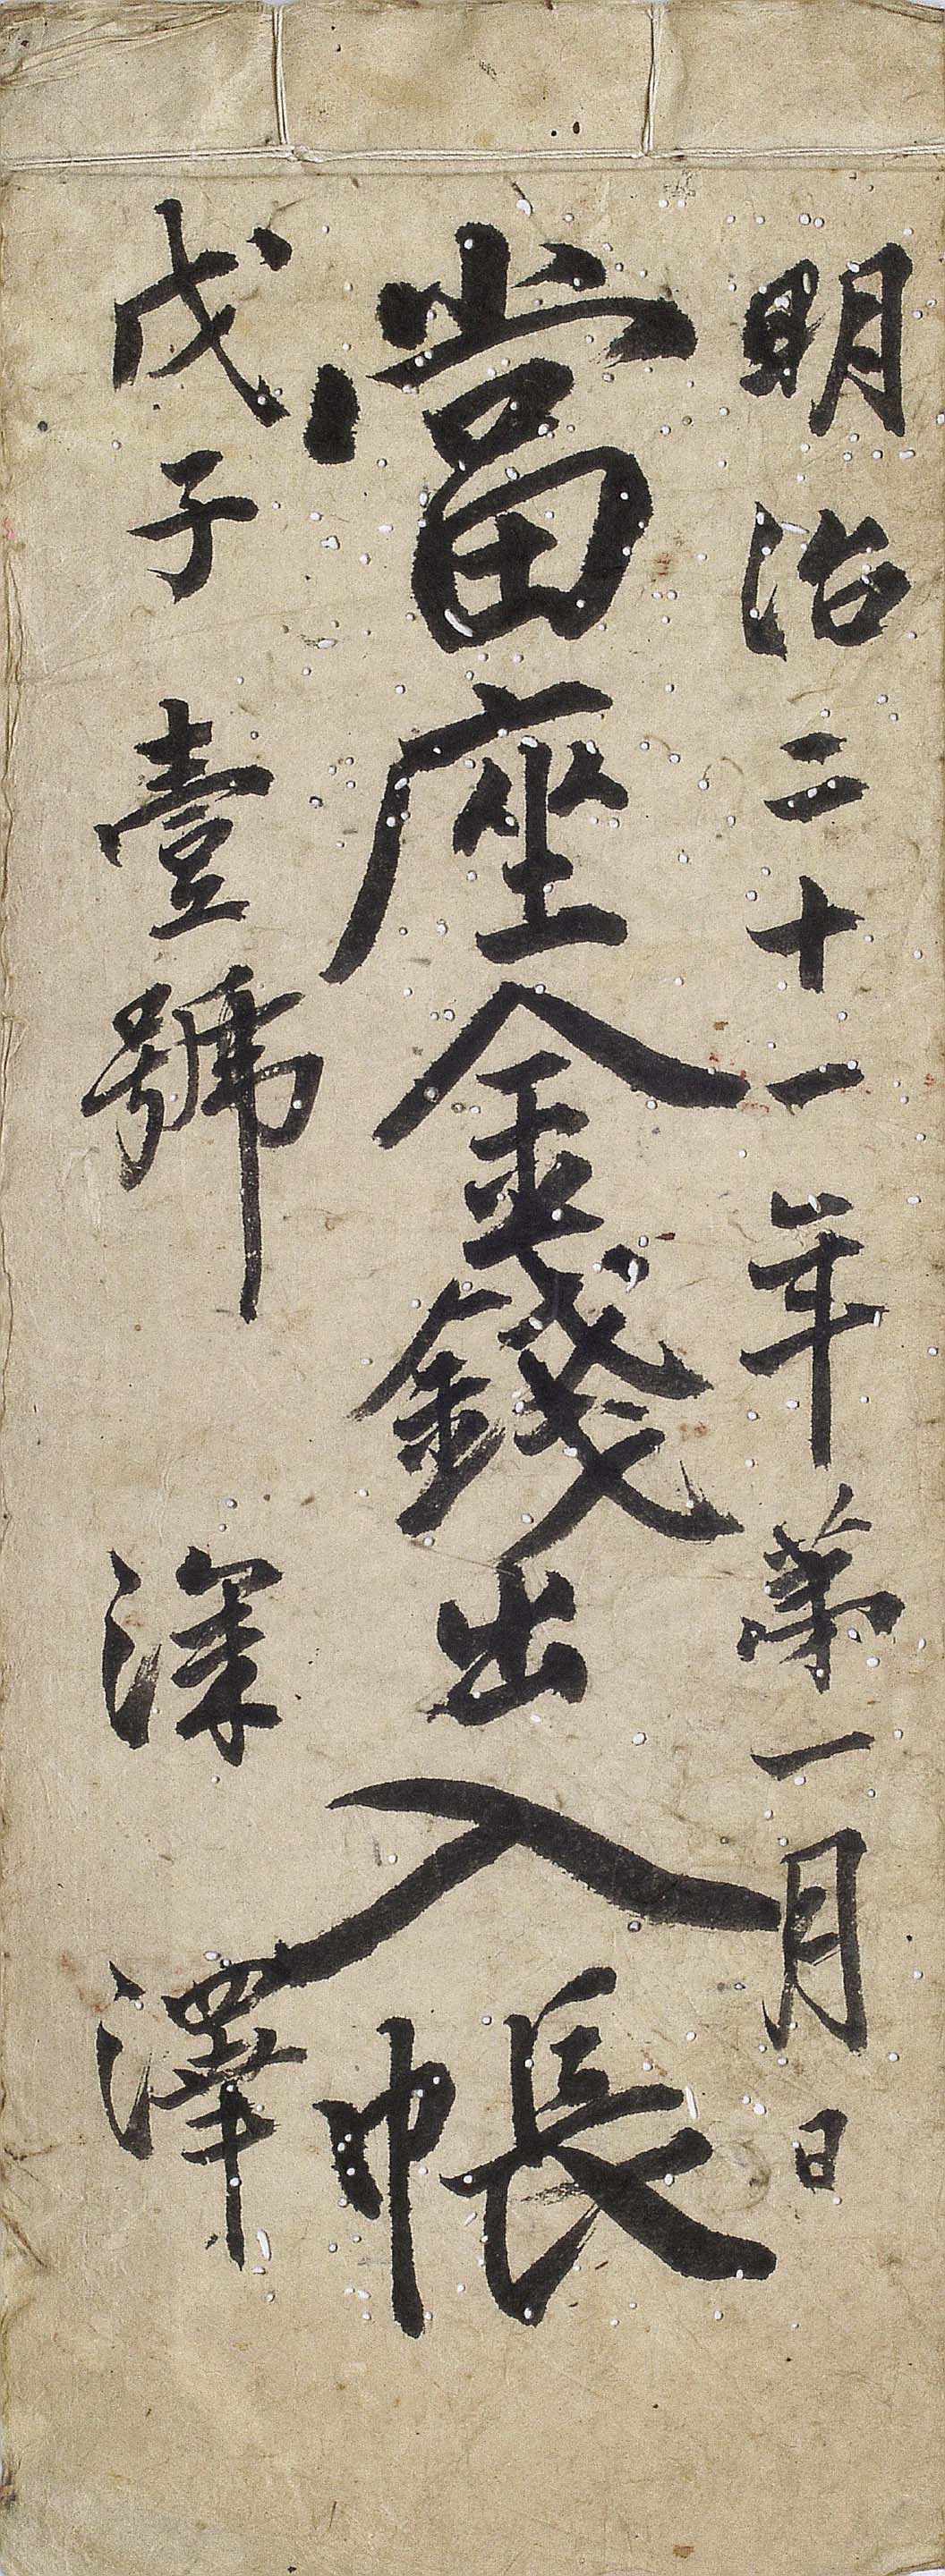 明治二十一年第一月日
當座金錢出入帳
戊子壹號 深澤